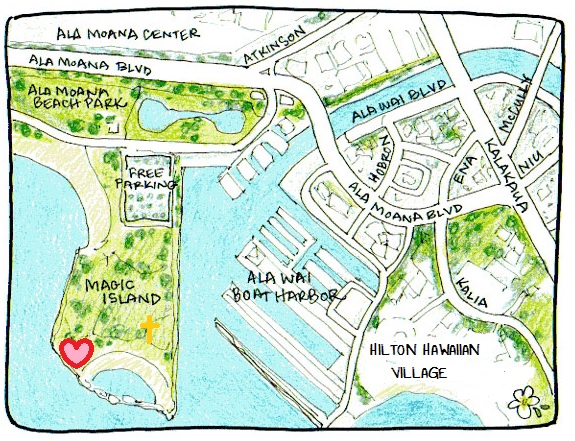 ALA MOANA CENTER
ATKINSON
ALA MOANA BLVD
ALA MOANA
BEACH PARK
ALA WAI BLVD
McCULLY
KALAKAWA
NIU
ENA
HOBRON
FREE
PARKING
ALA MOANA BLVD
MAGIC
ISLAND
ALA WAI
BOAT HARBOR
KALIA
HILTON HAWAIIAN
VILLAGE